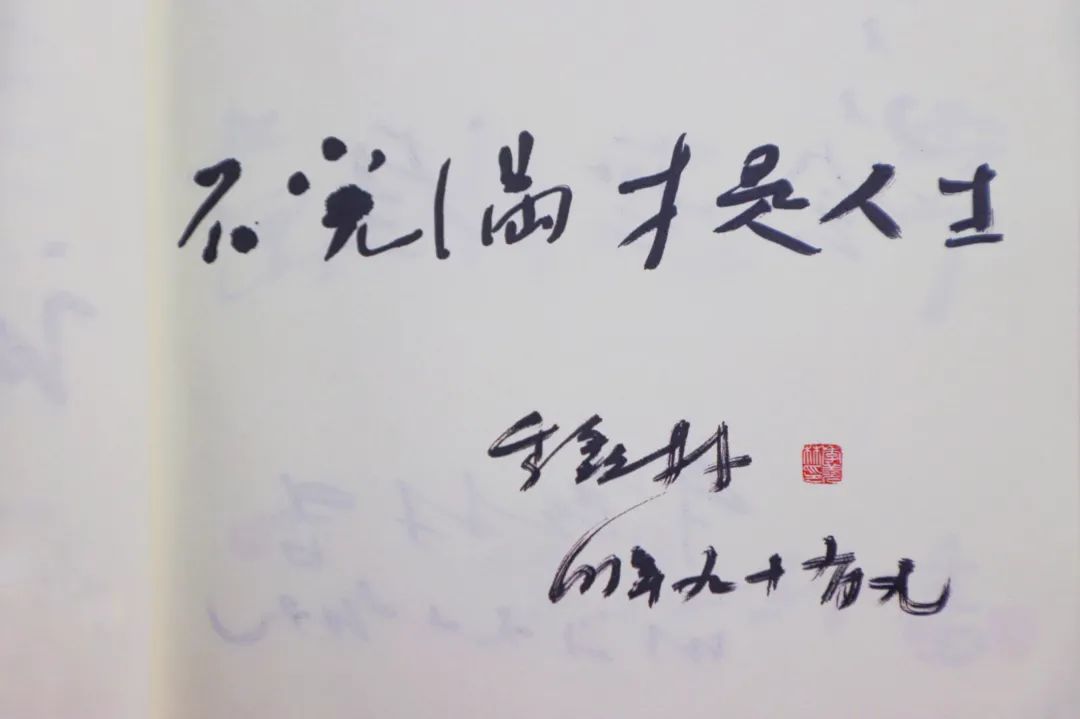 不完满才是人生
季羡林
时年九十有九
季羡林印